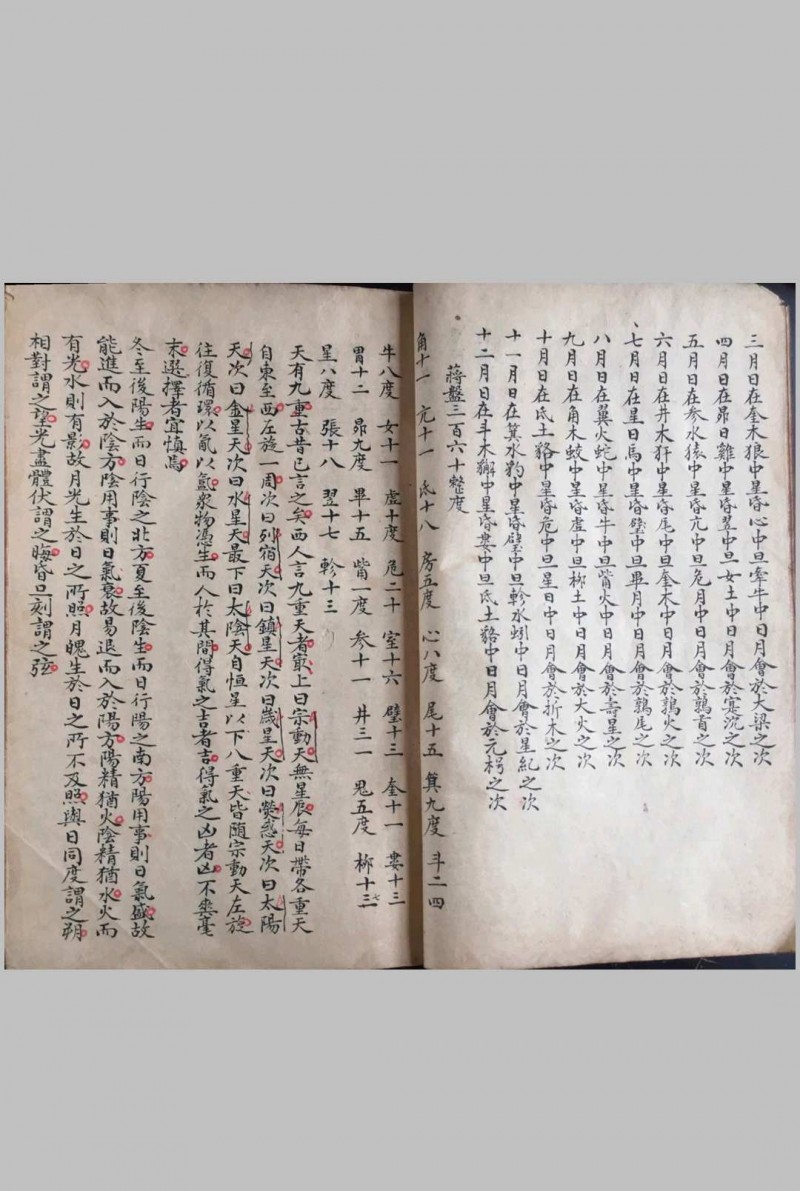 三月日在奎木狼中星昏心中旦牽牛中日月會於大梁之次
四月日在昴日雞中星昏翌中旦女土中日月會於寔沉之次
五月日在参水猿中星昏亢中旦危月中日月會於鶉首之次
六月日在井木犴中星昏尾中旦奎木中日月會於鶉火之次
七月日在星日馬中星昏璧中旦畢月中日月會於鶉尾之次
八月日在翼火蛇中星昏牛中旦觜火中日月會於壽星之次
九月日在角木蛟中星昏虛中旦柳土中日月會於大火之次
十月日在氐土貉中星昏危中旦星日中日月會於析木之次
十一月日在箕水豹中星昏璧中旦軫水蚓中日月會於星紀之次
十二月日在斗木獬中星昏婁中旦氐土貉中日月會於元枵之次
蔣盤三百六十整度
角十一 亢十一 氐十八 房五度 心八度 尾十五 箕九度 斗二四
牛八度 女十一 虛十度 危二十 室十六 璧十三 奎十一 婁十三
胃十二 昴九度 畢十五 觜一度 参十一 井三一 鬼五度 柳十三
星八度 張十八 翌十七 軫十三
天有九重古昔已言之矣西人言九重天者最上曰宗動天無星辰每日帶各重天
自東至西左旋一周次曰列宿天次曰鎮星天次曰歲星天次曰熒惑天次曰太陽
天次曰金星天次曰水星天最下曰太陰天自恒星以下八重天皆隨宗動天左旋
往復循環以氣以氤衆物憑生而人於其間得氣之吉者吉得氣之凶者凶不爽毫
末選擇者宜慎焉
冬至後陽生而日行陰之北方夏至後陰生而日行陽之南方陽用事則日氣盛故
能進而入於陰方陰用事則日氣衰故易退而入於陽方陽精猶火陰精猶水火而
有光水則有影故月光生於日之所照月魄生於日之所不及照與日同度謂之朔
相對謂之望光盡體伏謂之晦昏旦刻謂之弦